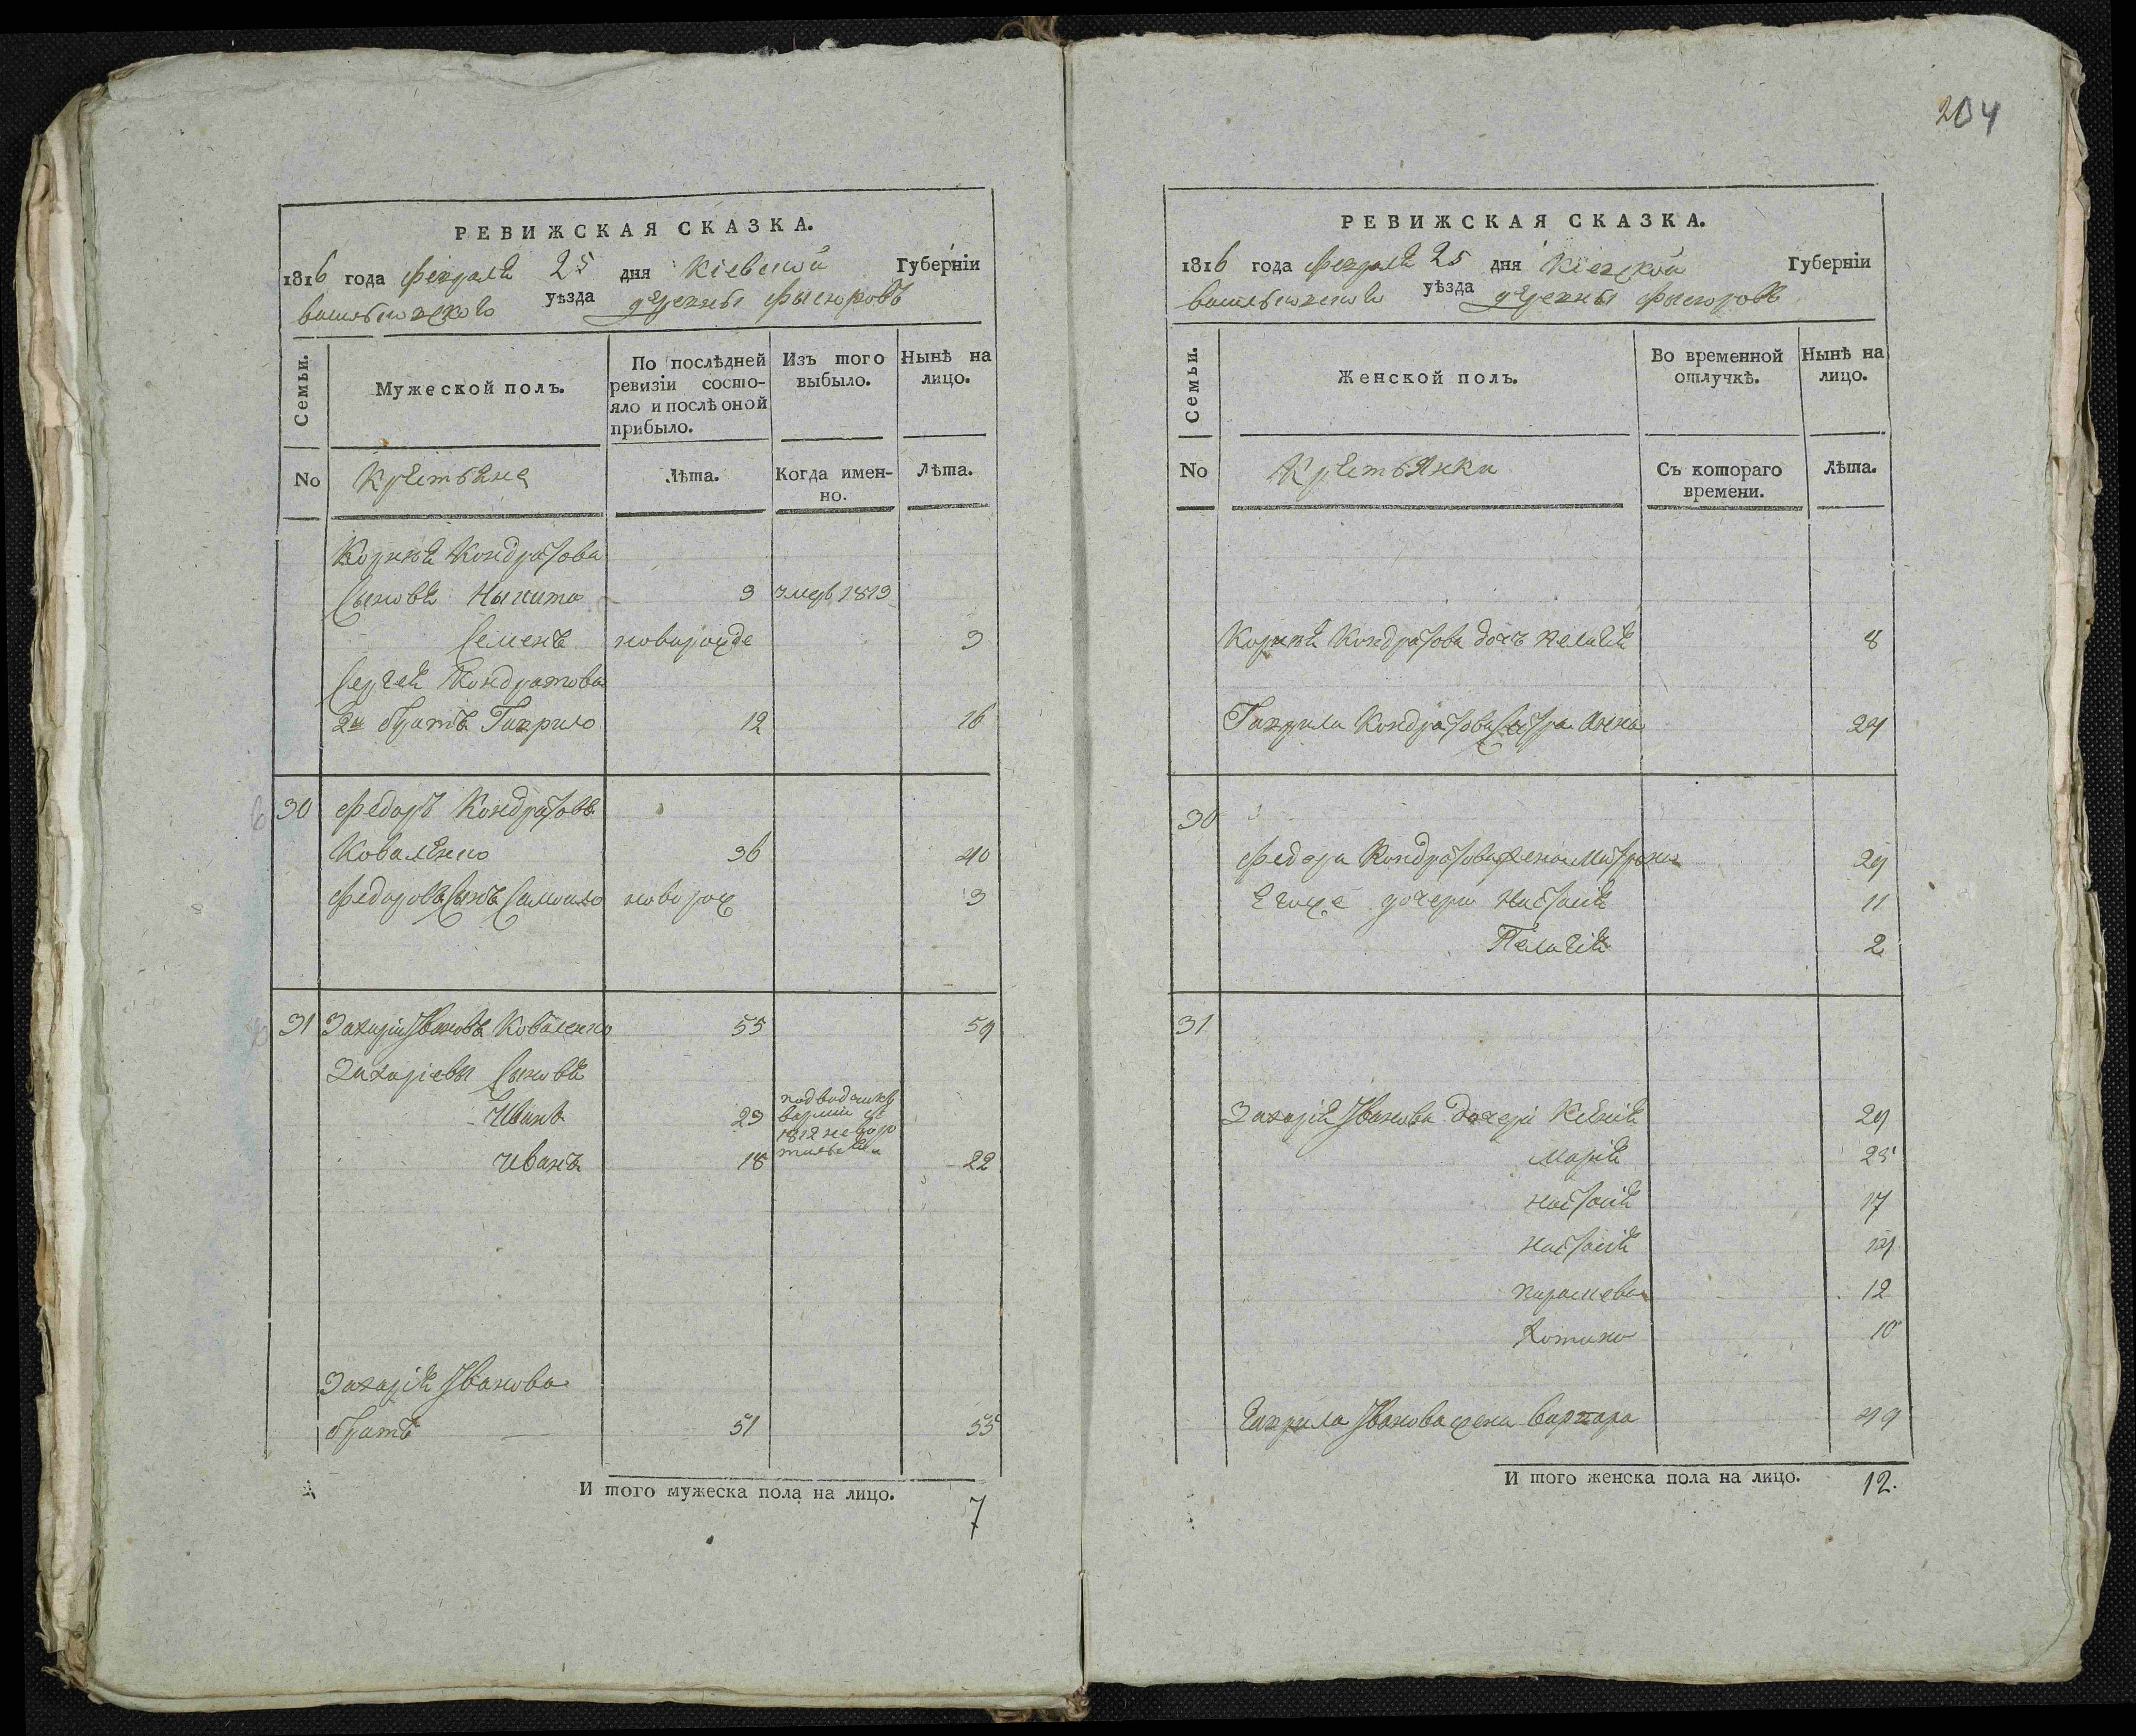 204
РЕВИЖСКАЯ СКАЗКА.
1816 года февраля 25 дня Кіевской Губерніи
васильковскаго уѣзда деревны
Семьи.
Мужеской полъ.
По послѣдней ревизіи состо-
яло и послѣ оной
прибыло.
Изъ того
выбыло.
Нынѣ на
лицо.
No
Крестьяне
Лѣта.
Когда имен-
но.
Лѣта.
Корнея Кондратова
Сыновя Никита 9 умеръ 1813
Семенъ новорожде 3
Сергея Кондратова
2й братъ Гаврило 12 16
30 Федоръ Кондратовъ
Коваленко 36 40
Федоровъ Сынъ Самойло новорож 3
31 Захарій Ивановъ Коваленко 55 59
Захаріевы Сыновя
Иванъ 23
1812
Иванъ 18 22
Захарія Иванова
братъ 51 55
И того мужеска пола на лицо. 7
РЕВИЖСКАЯ СКАЗКА.
1816 года февраля 25 дня Кіевской Губерніи
васильковскаго уѣзда деревны
Семьи.
Женской полъ.
Во временной
отлучкѣ.
Нынѣ на
лицо.
No
Крестьянки
Съ котораго
времени.
Лѣта.
Корнея Кондратова дочъ Пелагія 8
Гаврила Кондратова Сестра Анна 24
30
Федора Кондратова жена Матрона 29
Егоже дочери Настасія 11
Пелагія 2
31
Захарія Иванова дочери 29
Марія 25
Настасія 17
Настасія 14
Параскева 12
10
Гаврила Иванова жена Варвара 49
И того женска пола на лицо. 12.